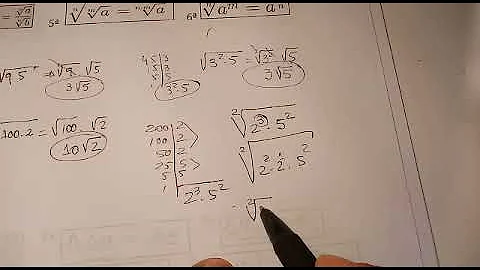 5ª) ⁿ√ᵐ√a = ⁿᵐ√a 6ª) ⁿ√aᵐ = a
√9.5 = √9 . √5
3√5
45|3
5|5
1|3².5
√3².5 = √3² . √5
3√5
√100.2 = √100 . √2
10√2
200|2
100|2
50|2
25|5
5|5
1|2³.5²
²√2³.5²
²√2².2¹.5²
²√